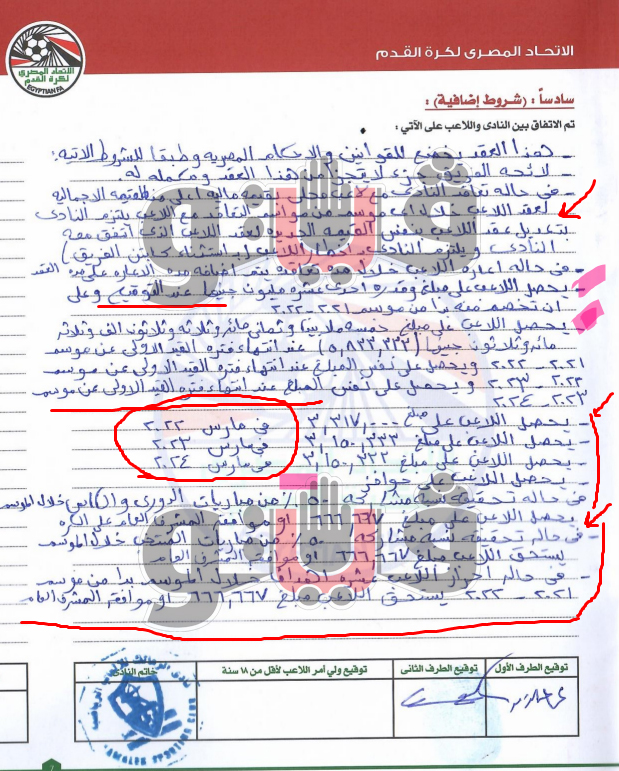 الاتحاد المصرى لكرة القدم
الاتحاد المصرى
لكرة القدم
EGYPTIAN FA
سادساً : (شروط إضافية) :
تم الاتفاق بين النادى واللاعب على الآتي :
- هذا العقد يخضع للقوانين والاحكام المصريه وطبقا للشروط الاتيه:
- لائحه جزء لا يتجزأ من هذا العقد ومكمله له
- فى حاله تعاقد النادى مع القيمه الاجماليه
لعقد اللاعب خلال موسم من مواسم التعاقد مع اللاعب يلتزم النادى
بتعديل عقد اللاعب لنفس القيمه اللاعب الذى اتفق معه
النادى ويلتزم النادى (اللاعب الفريق)
- فى حاله اعاره اللاعب خلال مده تعاقده يتم اضافه مده الاعاره على مده العقد
- يحصل اللاعب على مبلغ وقدره احدى عشر مليون جنيها عند التوقيع وعلى
ان تخصم منه بدأ من موسم ٢٠٢١-٢٠٢٢
- يحصل اللاعب على مبلغ خمسه مليون وثمانى مائه وثلاثه وثلاثون الف وثلاثه
مائه وثلاثون جنيها (٥,٨٣٣,٣٣٢) عند انتهاء فتره القيد الاولى عن موسم
٢٠٢١ - ٢٠٢٢ ويحصل على نفس المبلغ عند انتهاء فتره القيد الاولى عن موسم
٢٠٢٢ - ٢٠٢٣ ويحصل على نفس المبلغ عند انتهاء فتره القيد الاولى عن موسم
٢٠٢٣ - ٢٠٢٤
- يحصل اللاعب على مبلغ ٣,٣١٧,٠٠٠ فى مارس ٢٠٢٢
- يحصل اللاعب على مبلغ ٣,١٥٠,٣٣٣ فى مارس ٢٠٢٣
- يحصل اللاعب على مبلغ ٣,١٥٠,٣٣٢ فى مارس ٢٠٢٤
- يحصل اللاعب على حوافز
فى حاله تحقيقه نسبه مشاركه ٥٠٪ من مباريات الدورى و خلال الموسم
يحصل اللاعب على مبلغ ٦٦٧ او موافقه المشرف العام على الكره
- فى حاله تحقيقه لنسبه مشاركه ٥٠٪ من مباريات المنتخب خلال الموسم
يستحق اللاعب مبلغ ٦٦٦,٦٦٧ او موافقه المشرف العام
- فى حاله احراز اللاعب عشره اهداف خلال الموسم بدا من موسم
٢٠٢١ - ٢٠٢٢ يستحق اللاعب مبلغ ٦٦٦,٦٦٧ او موافقه المشرف العام
فيتو
فيتو
توقيع الطرف الأول
توقيع الطرف الثانى
توقيع ولي أمر اللاعب لأقل من ١٨ سنة
خاتم النادى
SPORTING CLUB
7